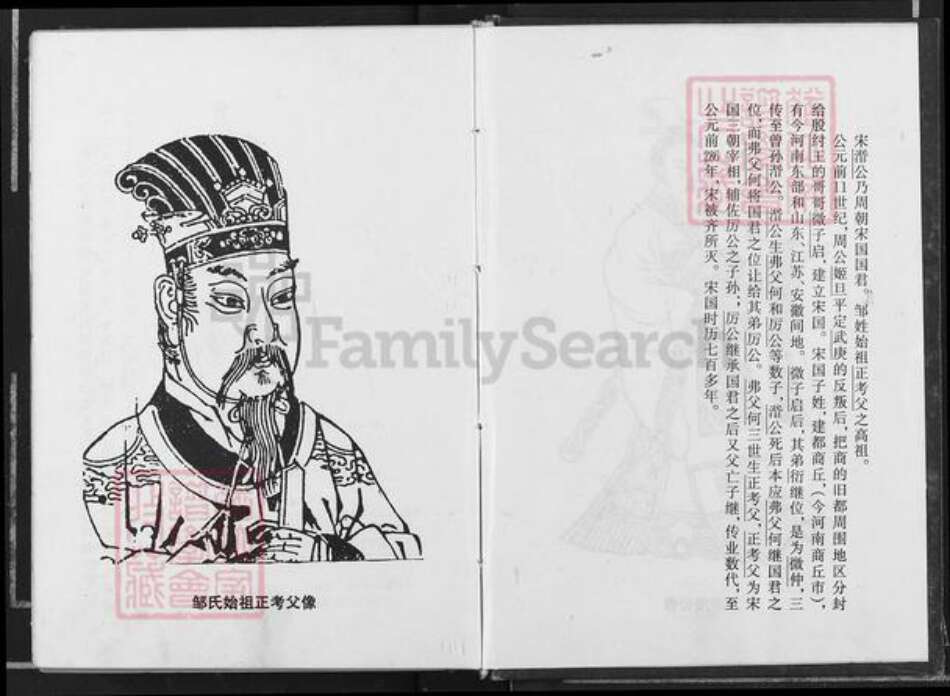 宋湣公乃周朝宋国国君。邹姓始祖正考父之高祖。
公元前11世纪，周公姬旦平定武庚的反叛后，把商的旧都周围地区分封
给殷纣王的哥哥微子启，建立宋国。宋国子姓，建都商丘，（今河南商丘市），
有今河南东部和山东、江苏、安徽间地。微子启后，其弟衍继位，是为微仲，三
传至曾孙湣公。湣公生弗父何和厉公等数子，湣公死后本应弗父何继国君之
位，而弗父何将国君之位让给其弟厉公。弗父何三世生正考父、正考父为宋
国三朝宰相，辅佐厉公之子孙，厉公继承国君之后又父亡子继，传业数代，至
公元前286年，宋被齐所灭。宋国时历七百多年。
邹氏始祖正考父像
FamilySearch